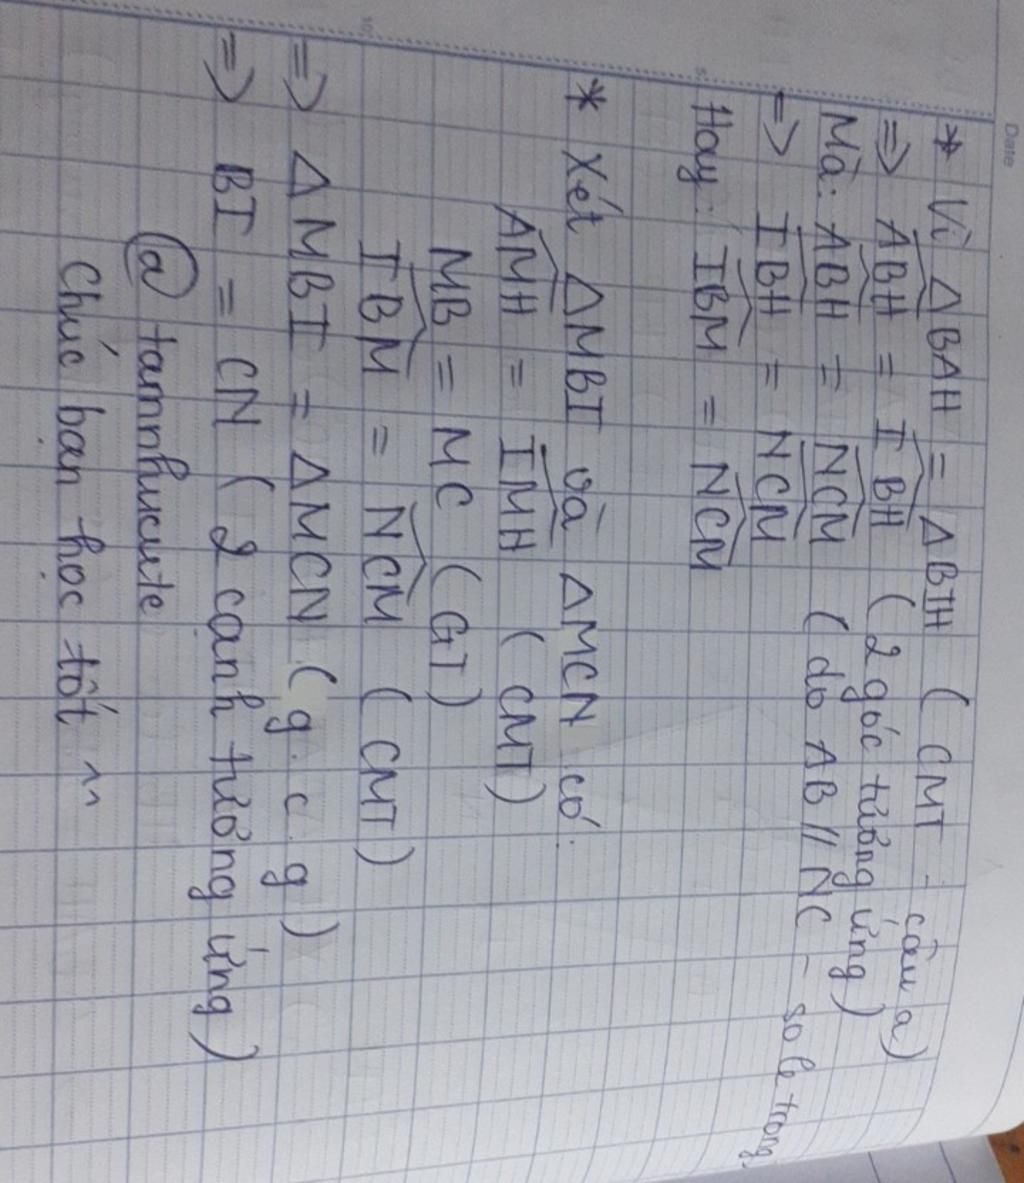 Date
* Vì ΔBAH = ΔBIH ( CMT - câu a)
=> \widehat{ABH} = \widehat{IBH} ( 2 góc tương ứng )
Mà: \widehat{ABH} = \widehat{NCM} ( do AB // NC - so le trong
=> \widehat{IBH} = \widehat{NCM}
Hay: \widehat{IBM} = \widehat{NCM}
* Xét ΔMBI và ΔMCN có:
\widehat{AMH} = \widehat{IMH} ( CMT )
MB = MC ( GT )
\widehat{IBM} = \widehat{NCM} ( CMT )
=> ΔMBI = ΔMCN ( g.c.g )
=> BI = CN ( 2 cạnh tương ứng )
@ tamnhucute
Chúc bạn học tốt ^^